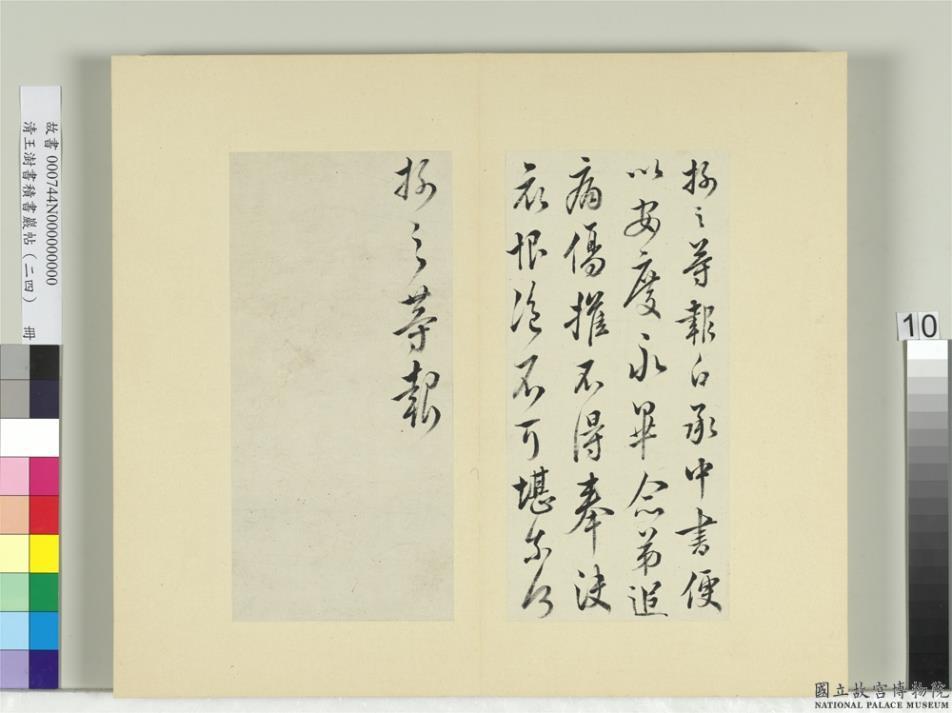 操之等報白承中書便
以安度永畢念弟追
痛傷摧不得奉訣
哀恨深不可堪奈何
操之等報
故書 000744N000000000
清王澍書積書巖帖（二四） 冊
10
國立故宮博物院
NATIONAL PALACE MUSEUM